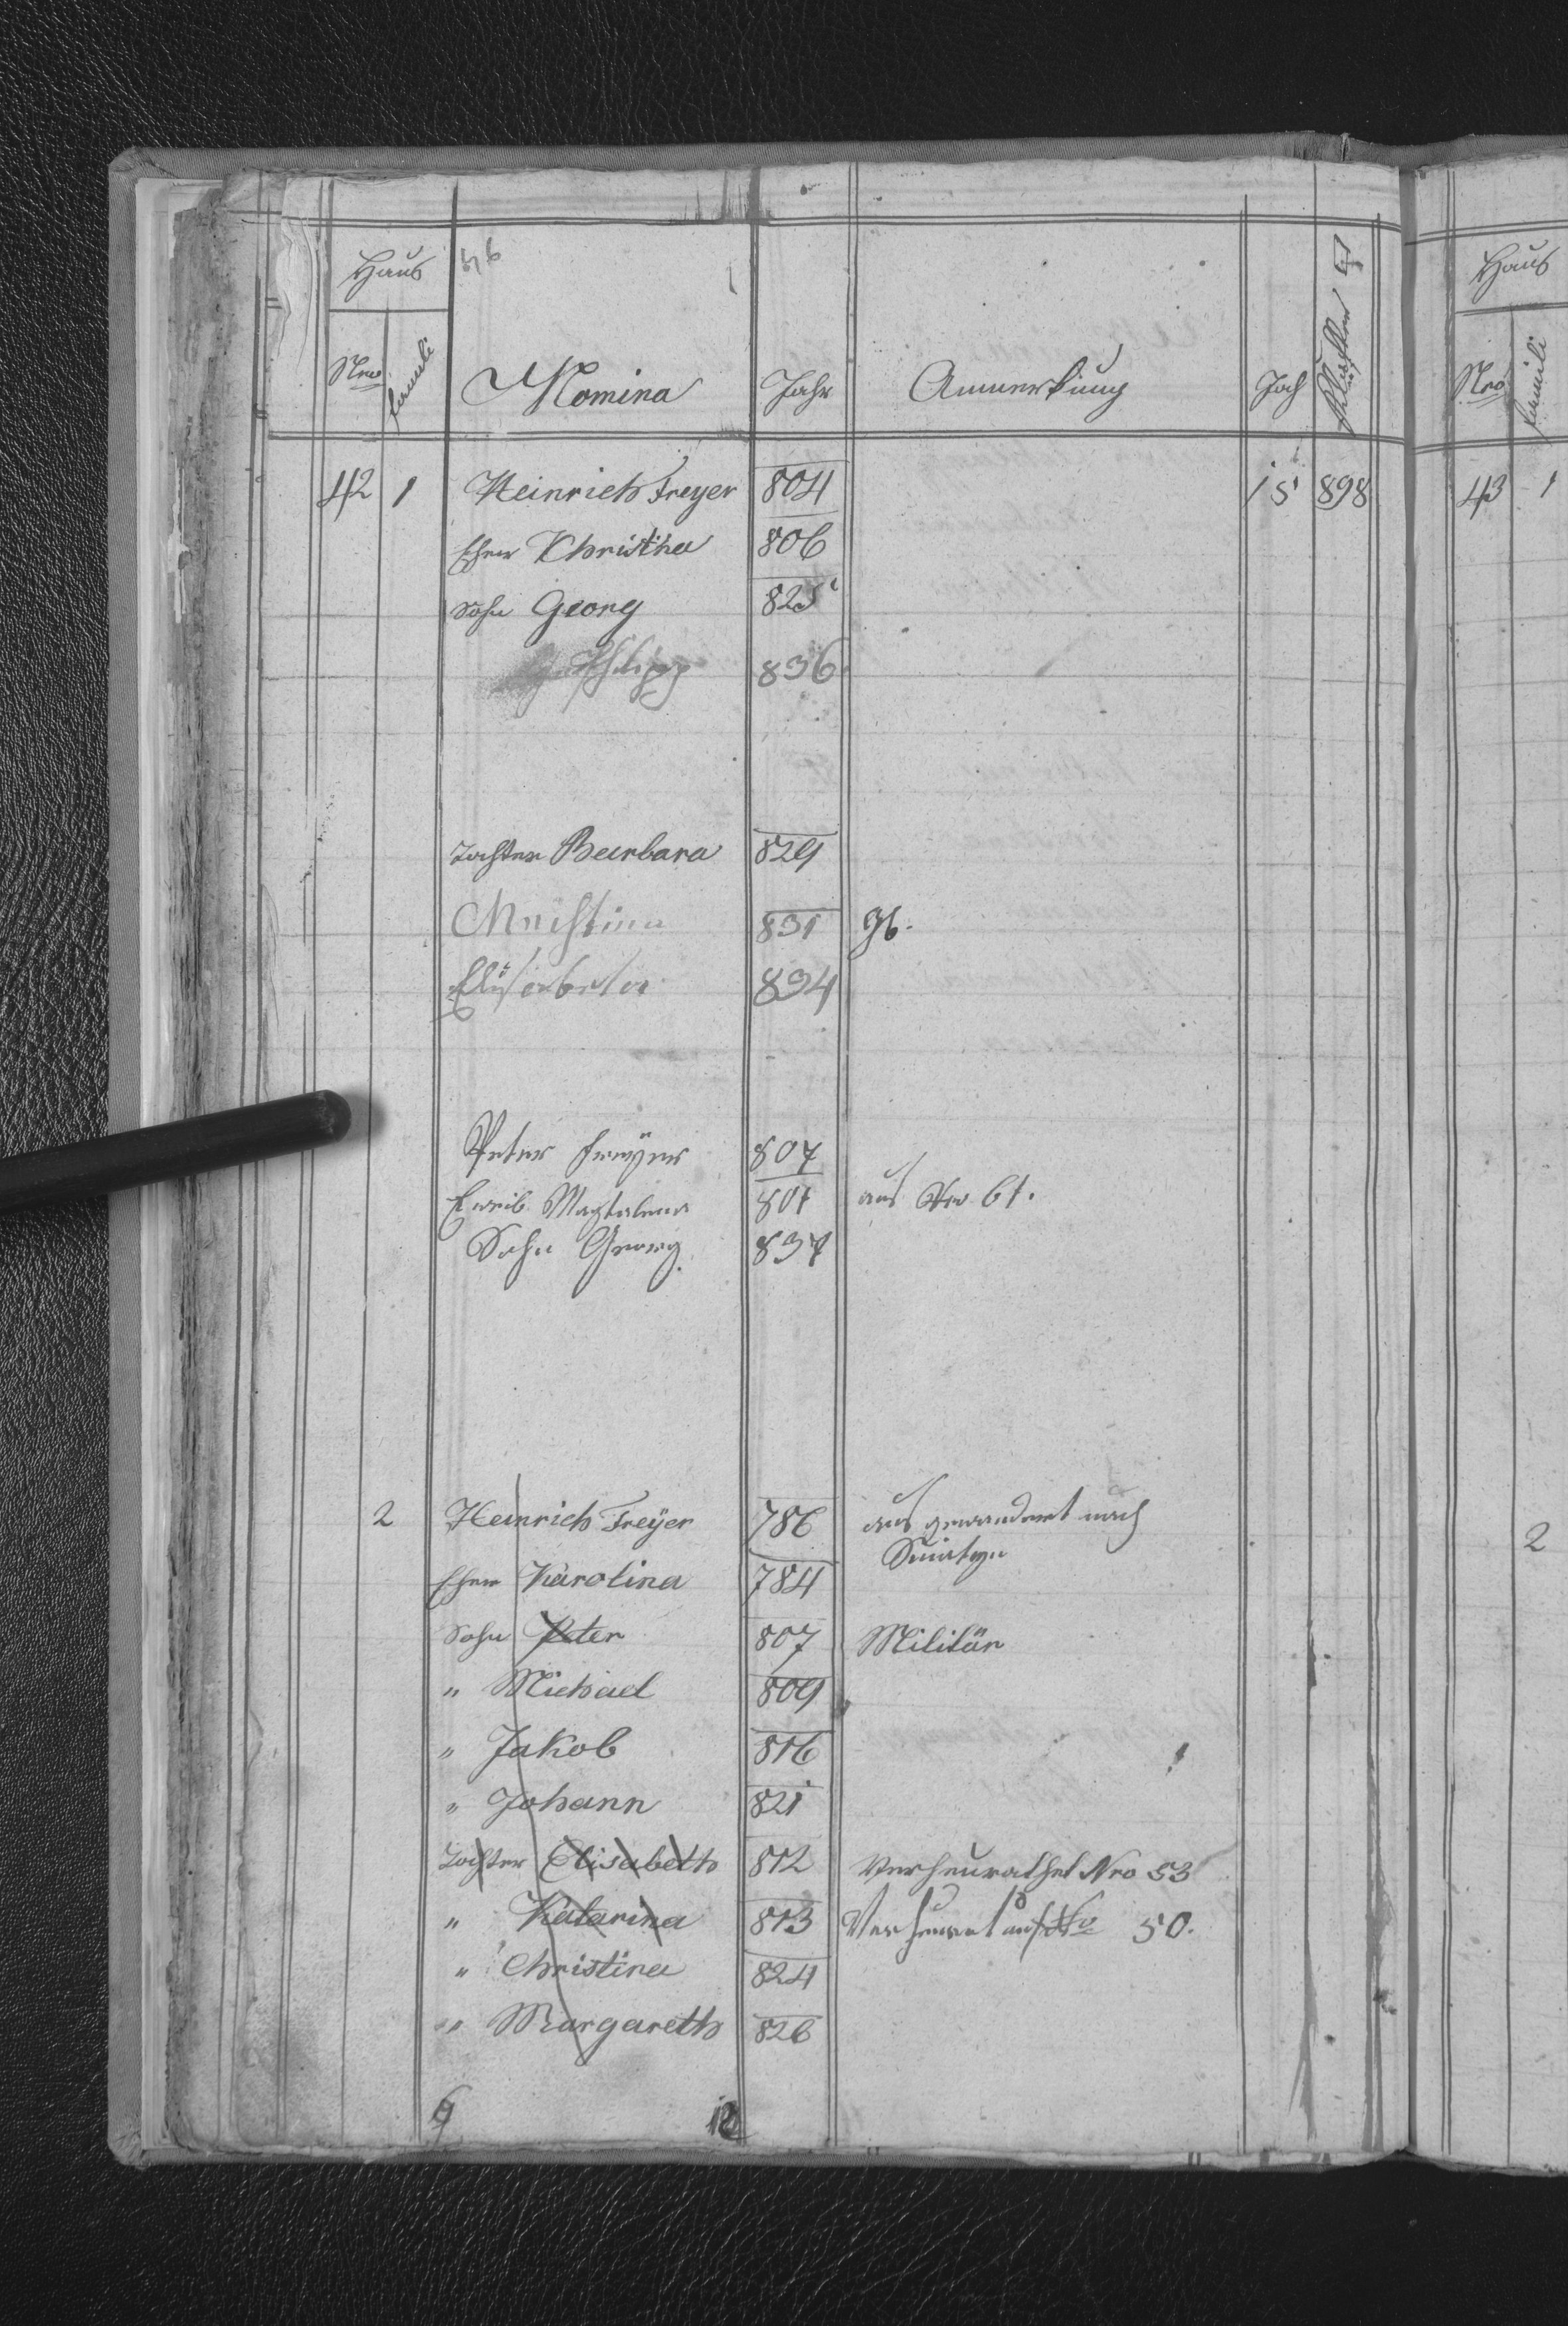 Haus
Nro
famili
Nomina
Jahr
Anmerkung
Joch
Klafter
42 1 Heinrich Freyer 804 15 898
Ehew Christina 806
Sohn Georg 825
Philipp 836
Tochter Barbara 829
Christina 831 gb.
Elisabetha 834
Peter Freyer 807
E weib Magtalena 801 aus Nro 61.
Sohn Georg 837
2 Heinrich Freÿer 786 aus gewandert nach
Sniatyn
Ehew Karolina 784
Sohn Peter 807 Militär
" Michael 809
" Jakob 816
" Johann 821
Tochter Elisabeth 812 Verheurathet Nro 53
" Katarina 813 Verheurat auf Nro 50.
" Christina 824
" Margareth 826
6 12
Haus
Nro
famili
43 1
2